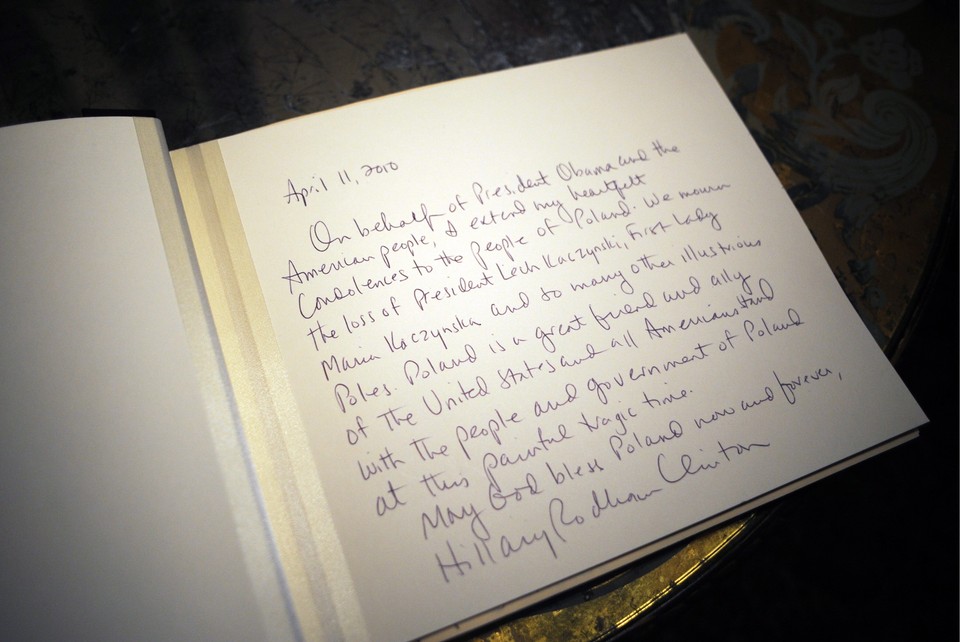 April 11, 2010
On behalf of President Obama and the
American people, I extend my heartfelt
Condolences to the people of Poland. We mourn
the loss of President Lech Kaczynski, First Lady
Maria Kaczynska and so many other illustrious
Poles. Poland is a great friend and ally
of the United States and all Americans stand
with the people and government of Poland
at this painful tragic time.
May God bless Poland now and forever,
Hillary Rodham Clinton